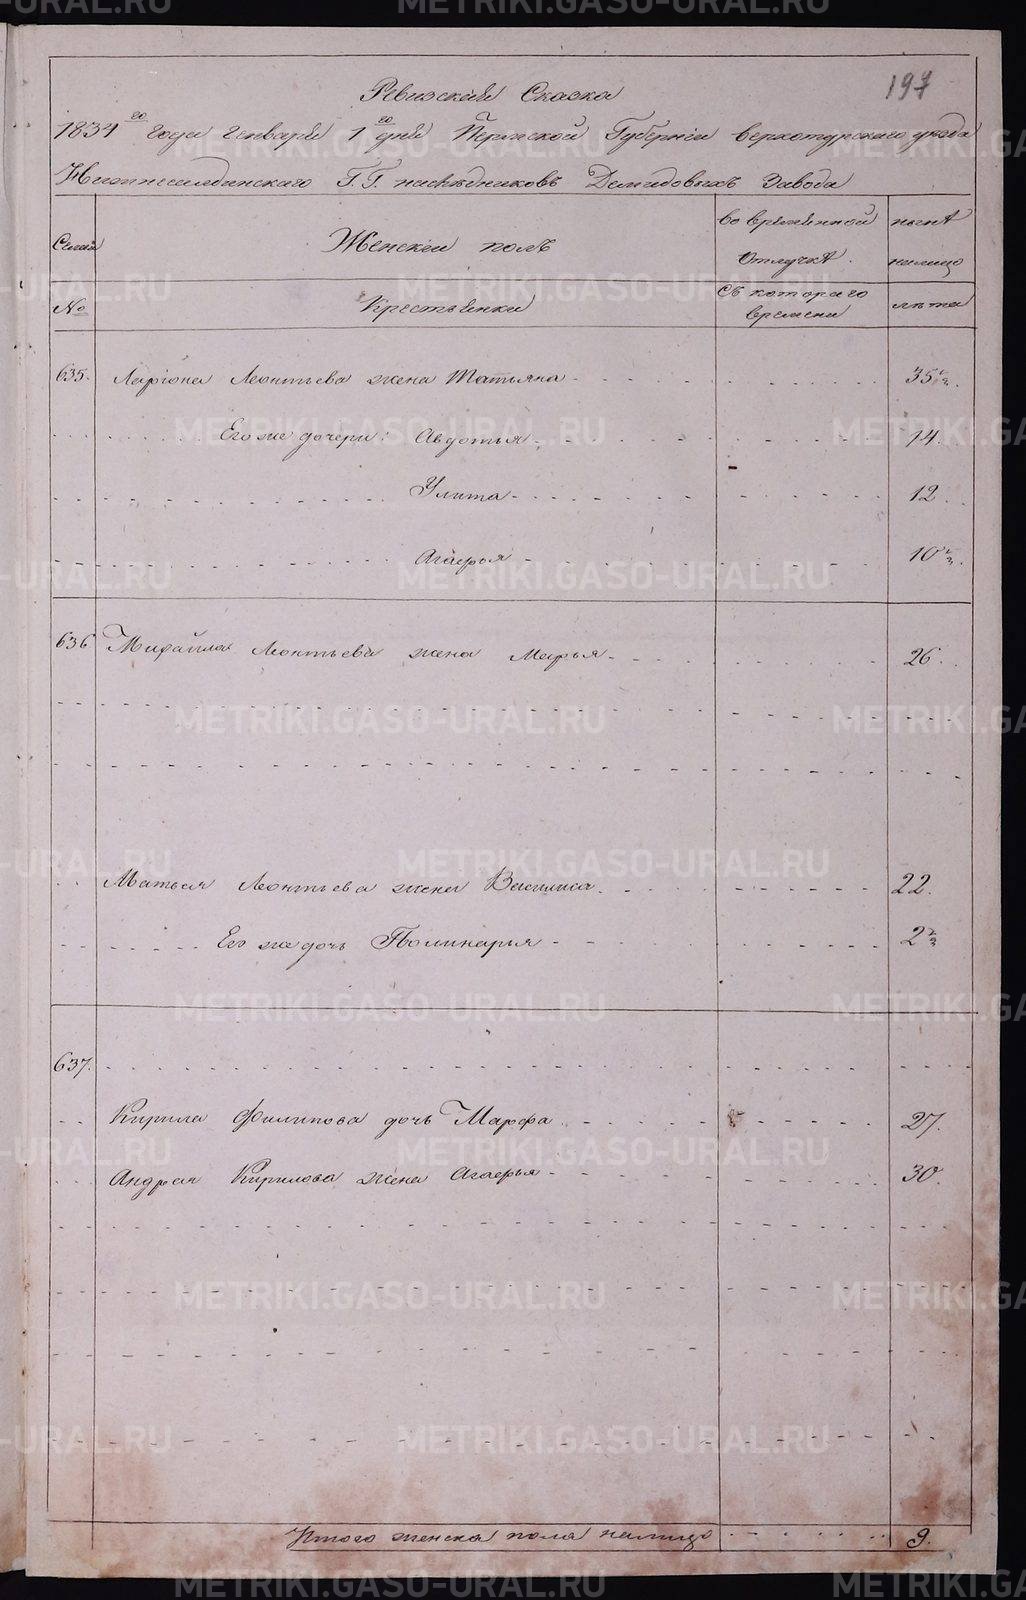 197
Ревизская Сказка
1834го года генваря 1го дня Пермской Губернии верхотурского уезда
Нижнесалдинского Г.Г. наследниковъ Демидовыхъ Завода
Семьи
Женский полъ
во временной отлучкѣ.
нынѣ налицо
№
Крестьянки
Съ котораго времени
лѣта
635. Лариона Леонтьева жена Татьяна 35 1/2.
Его же дочери: Авдотья 14.
Улита 12.
Агафья 10 1/2.
636 Михайла Леонтьева жена Марья 26.
Матвея Леонтьева жена Василиса 22.
Его же дочь Полинарья 2 1/2
637.
Кирила Филипова дочь Марфа 27.
Андрея Кирилова жена Агафья 30.
Итого женска пола налицо 9.
METRIKI.GASO-URAL.RU